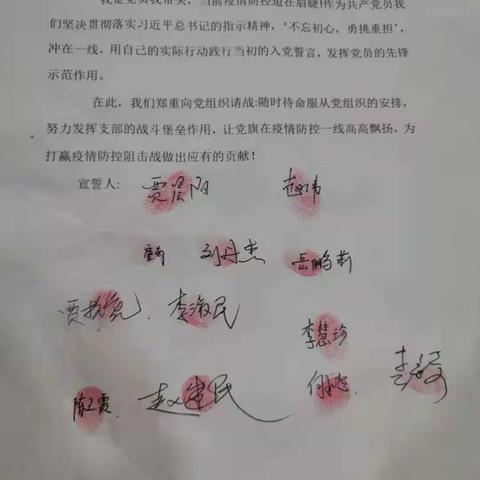 我是党员我带头，当前疫情防控迫在眉睫!作为共产党员我
们坚决贯彻落实习近平总书记的指示精神，‘不忘初心，勇挑重担’，
冲在一线，用自己的实际行动践行当初的入党誓言，发挥党员的先锋
示范作用。
在此，我们郑重向党组织请战:随时待命服从党组织的安排，
努力发挥支部的战斗堡垒作用，让党旗在疫情防控一线高高飘扬，为
打赢疫情防控阻击战做出应有的贡献！
宣誓人:
刘丹杰 岳鹏莉
李淑民
李慧珍
陈卫霞 赵建民